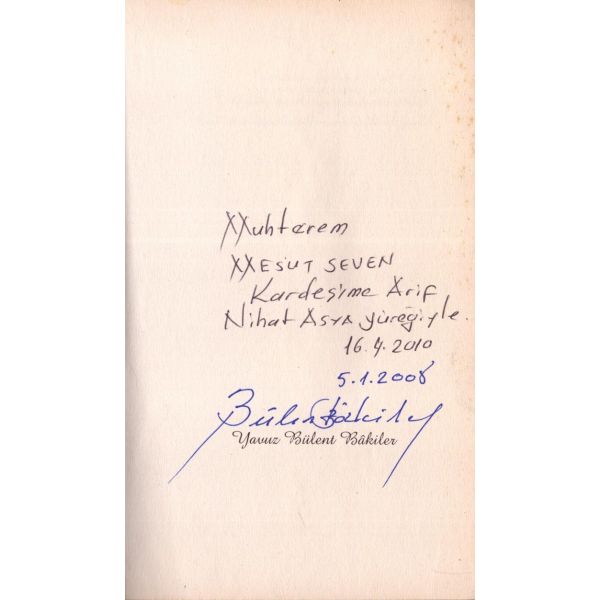 Muhterem
MESUT SEVEN
Kardeşime Arif
Nihat Asya yüreğiyle.
16.4.2010
5.1.2008
Bülent Bâkiler
Yavuz Bülent Bâkiler